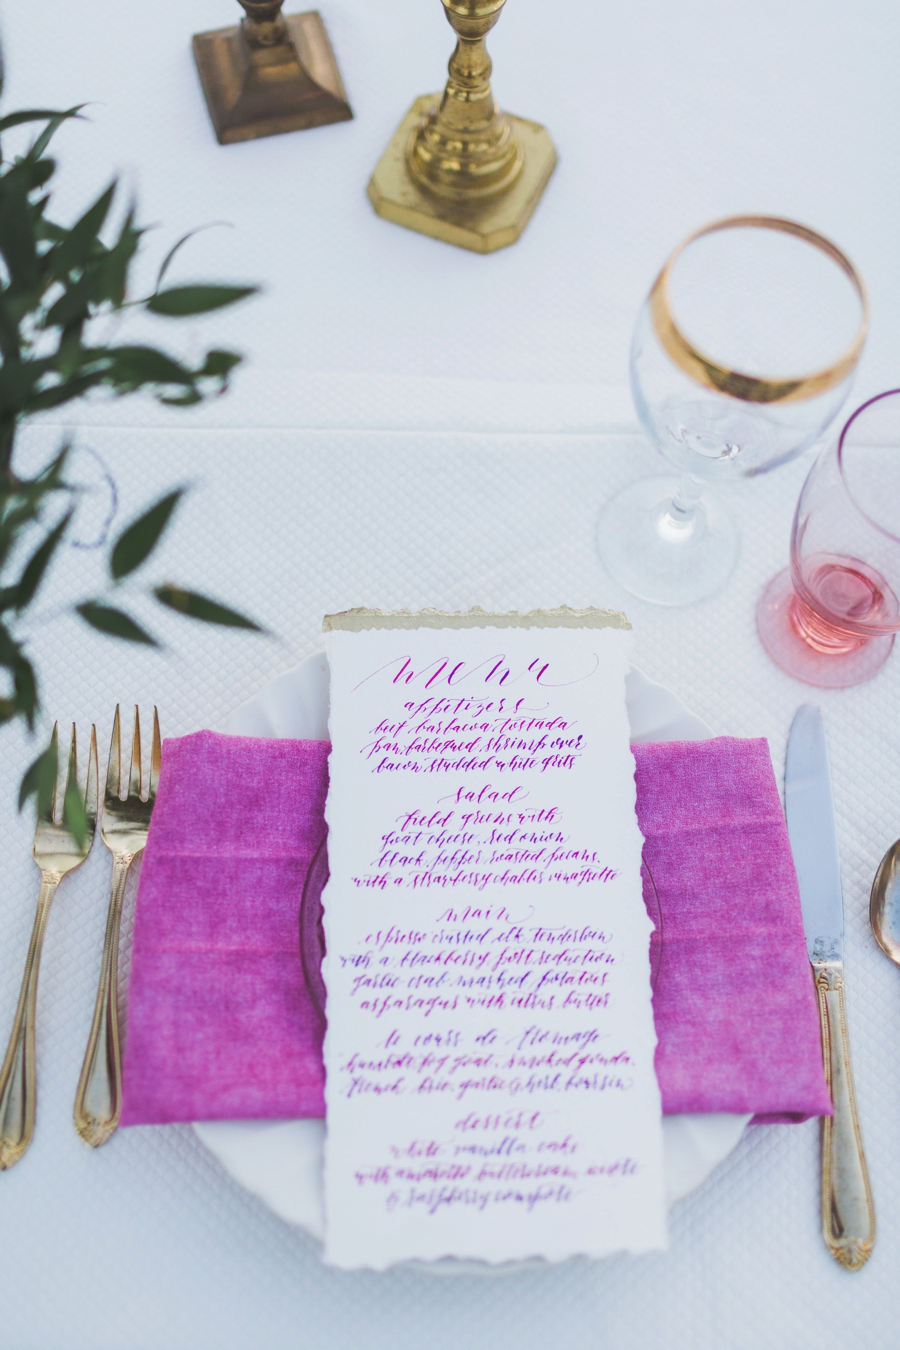 menu
appetizers
beef barbacoa tostada
pan barbequed shrimp over
bacon studded white grits
salad
field greens with
goat cheese, red onion
black pepper roasted pecans
with a strawberry chablis vinagrette
main
espresso crusted elk tenderloin
with a blackberry port reduction
garlic crab mashed potatoes
asparagus with citrus butter
le cours de fromage
humbolt fog goat, smoked gouda,
french brie, garlic & herb boursin
dessert
white vanilla cake
with amaretto buttercream
& raspberry compote